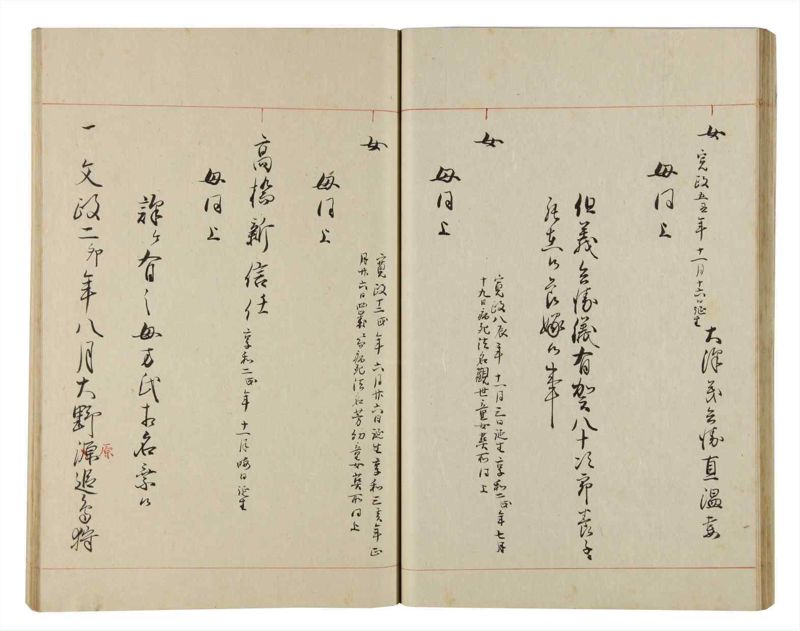 女 寛政五丑年十一月十六日誕生 大澤義兵衛直温妻
母同上
但義兵衛儀有賀八十次郎養子
在而嫁
女 寛政八辰年十一月三日誕生享和二戌年七月
十九日病死法名觀世童女葬所同上
母同上
女 寛政十二申年六月廿六日誕生享和三亥年正
月廿六日四歳ニ而病死法名芳幻童女葬所同上
母同上
高橋新信任 享和二戌年十一月晦日誕生
母同上
譯ケ有之母方氏相名乗
一文政二卯年八月大野源追鳥狩
原